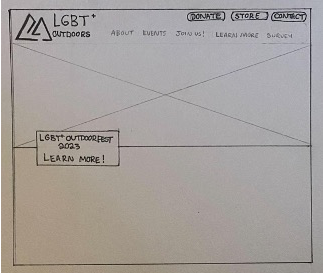 LGBT+
OUTDOORS
DONATE STORE CONTACT
ABOUT EVENTS JOIN US! LEARN MORE SURVEY
LGBT+ OUTDOORFEST
2023
LEARN MORE!